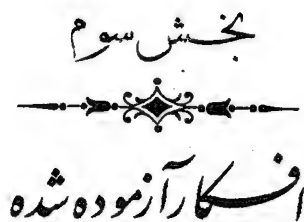 بخش سوم
افکار آزموده شده